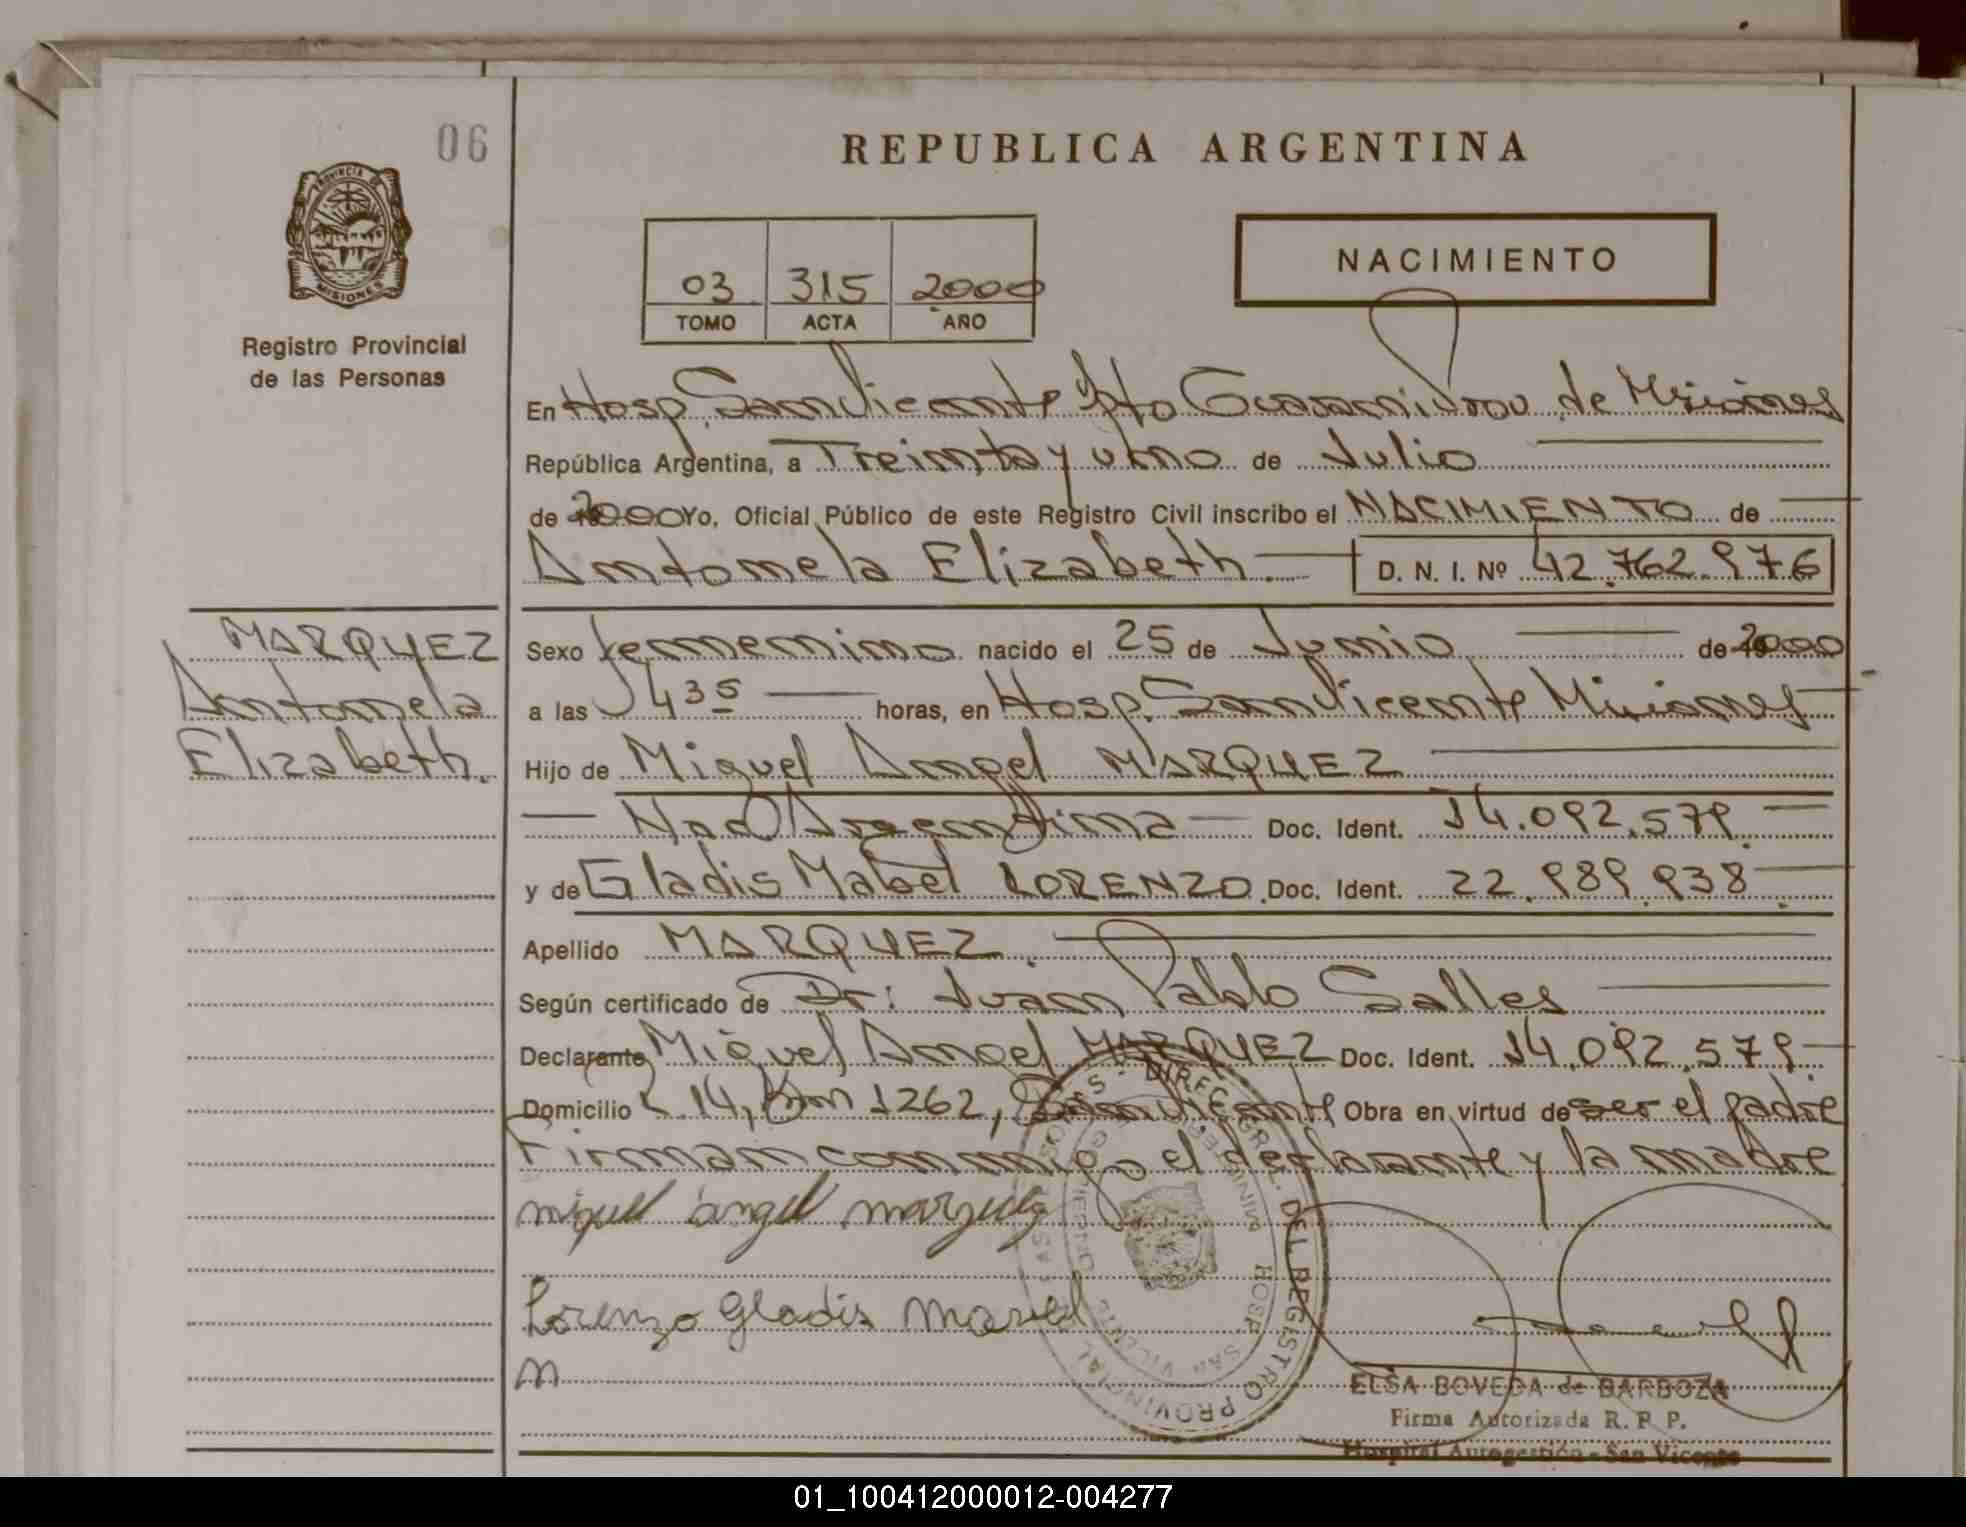 06
REPUBLICA ARGENTINA
PROVINCIA DE MISIONES
Registro Provincial
de las Personas
03 315 2000
TOMO ACTA AÑO
NACIMIENTO
En Hosp. San Vicente Dto Guarani Prov. de Misiones
República Argentina, a Treinta y uno de Julio
de 2000 Yo, Oficial Público de este Registro Civil inscribo el NACIMIENTO de
Antonela Elizabeth. D. N. I. Nº 42.762.976
MARQUEZ
Antonela
Elizabeth.
Sexo femenino nacido el 25 de Junio de 2000
a las 1435 horas, en Hosp. San Vicente Misiones
Hijo de Miguel Angel MARQUEZ
Nac Argentina Doc. Ident. 14.092.579
y de Gladis Mabel LORENZO. Doc. Ident. 22.989.938
Apellido MARQUEZ.
Según certificado de Dr: Juan Pablo Salles
Declarante Miguel Angel MARQUEZ Doc. Ident. 14.092.579
Domicilio 14, Km 1262, San Vicente, Obra en virtud de ser el padre
Firman conmigo el declarante y la madre
miguel angel marquez
Lorenzo Gladis Mavel
DIREC. GRL. DEL REGISTRO PROVINCIAL
HOSP. SAN VICENTE
ELSA BOVEDA de BARBOZA
Firma Autorizada R. P. P.
Hospital Autogestión - San Vicente
01_100412000012-004277